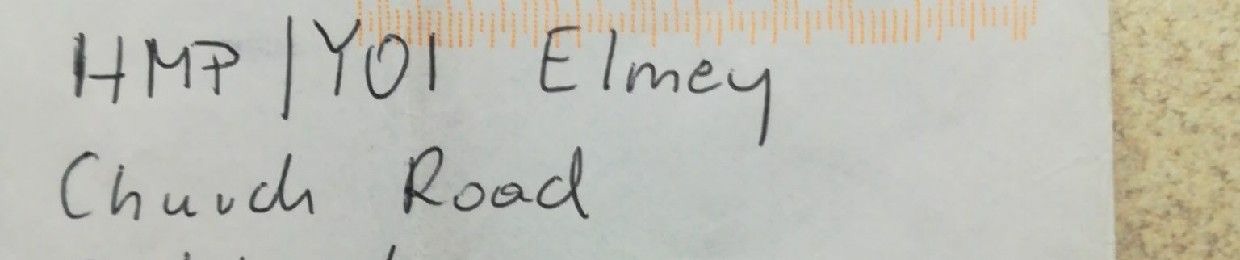 HMP/YOI Elmey
Church Road